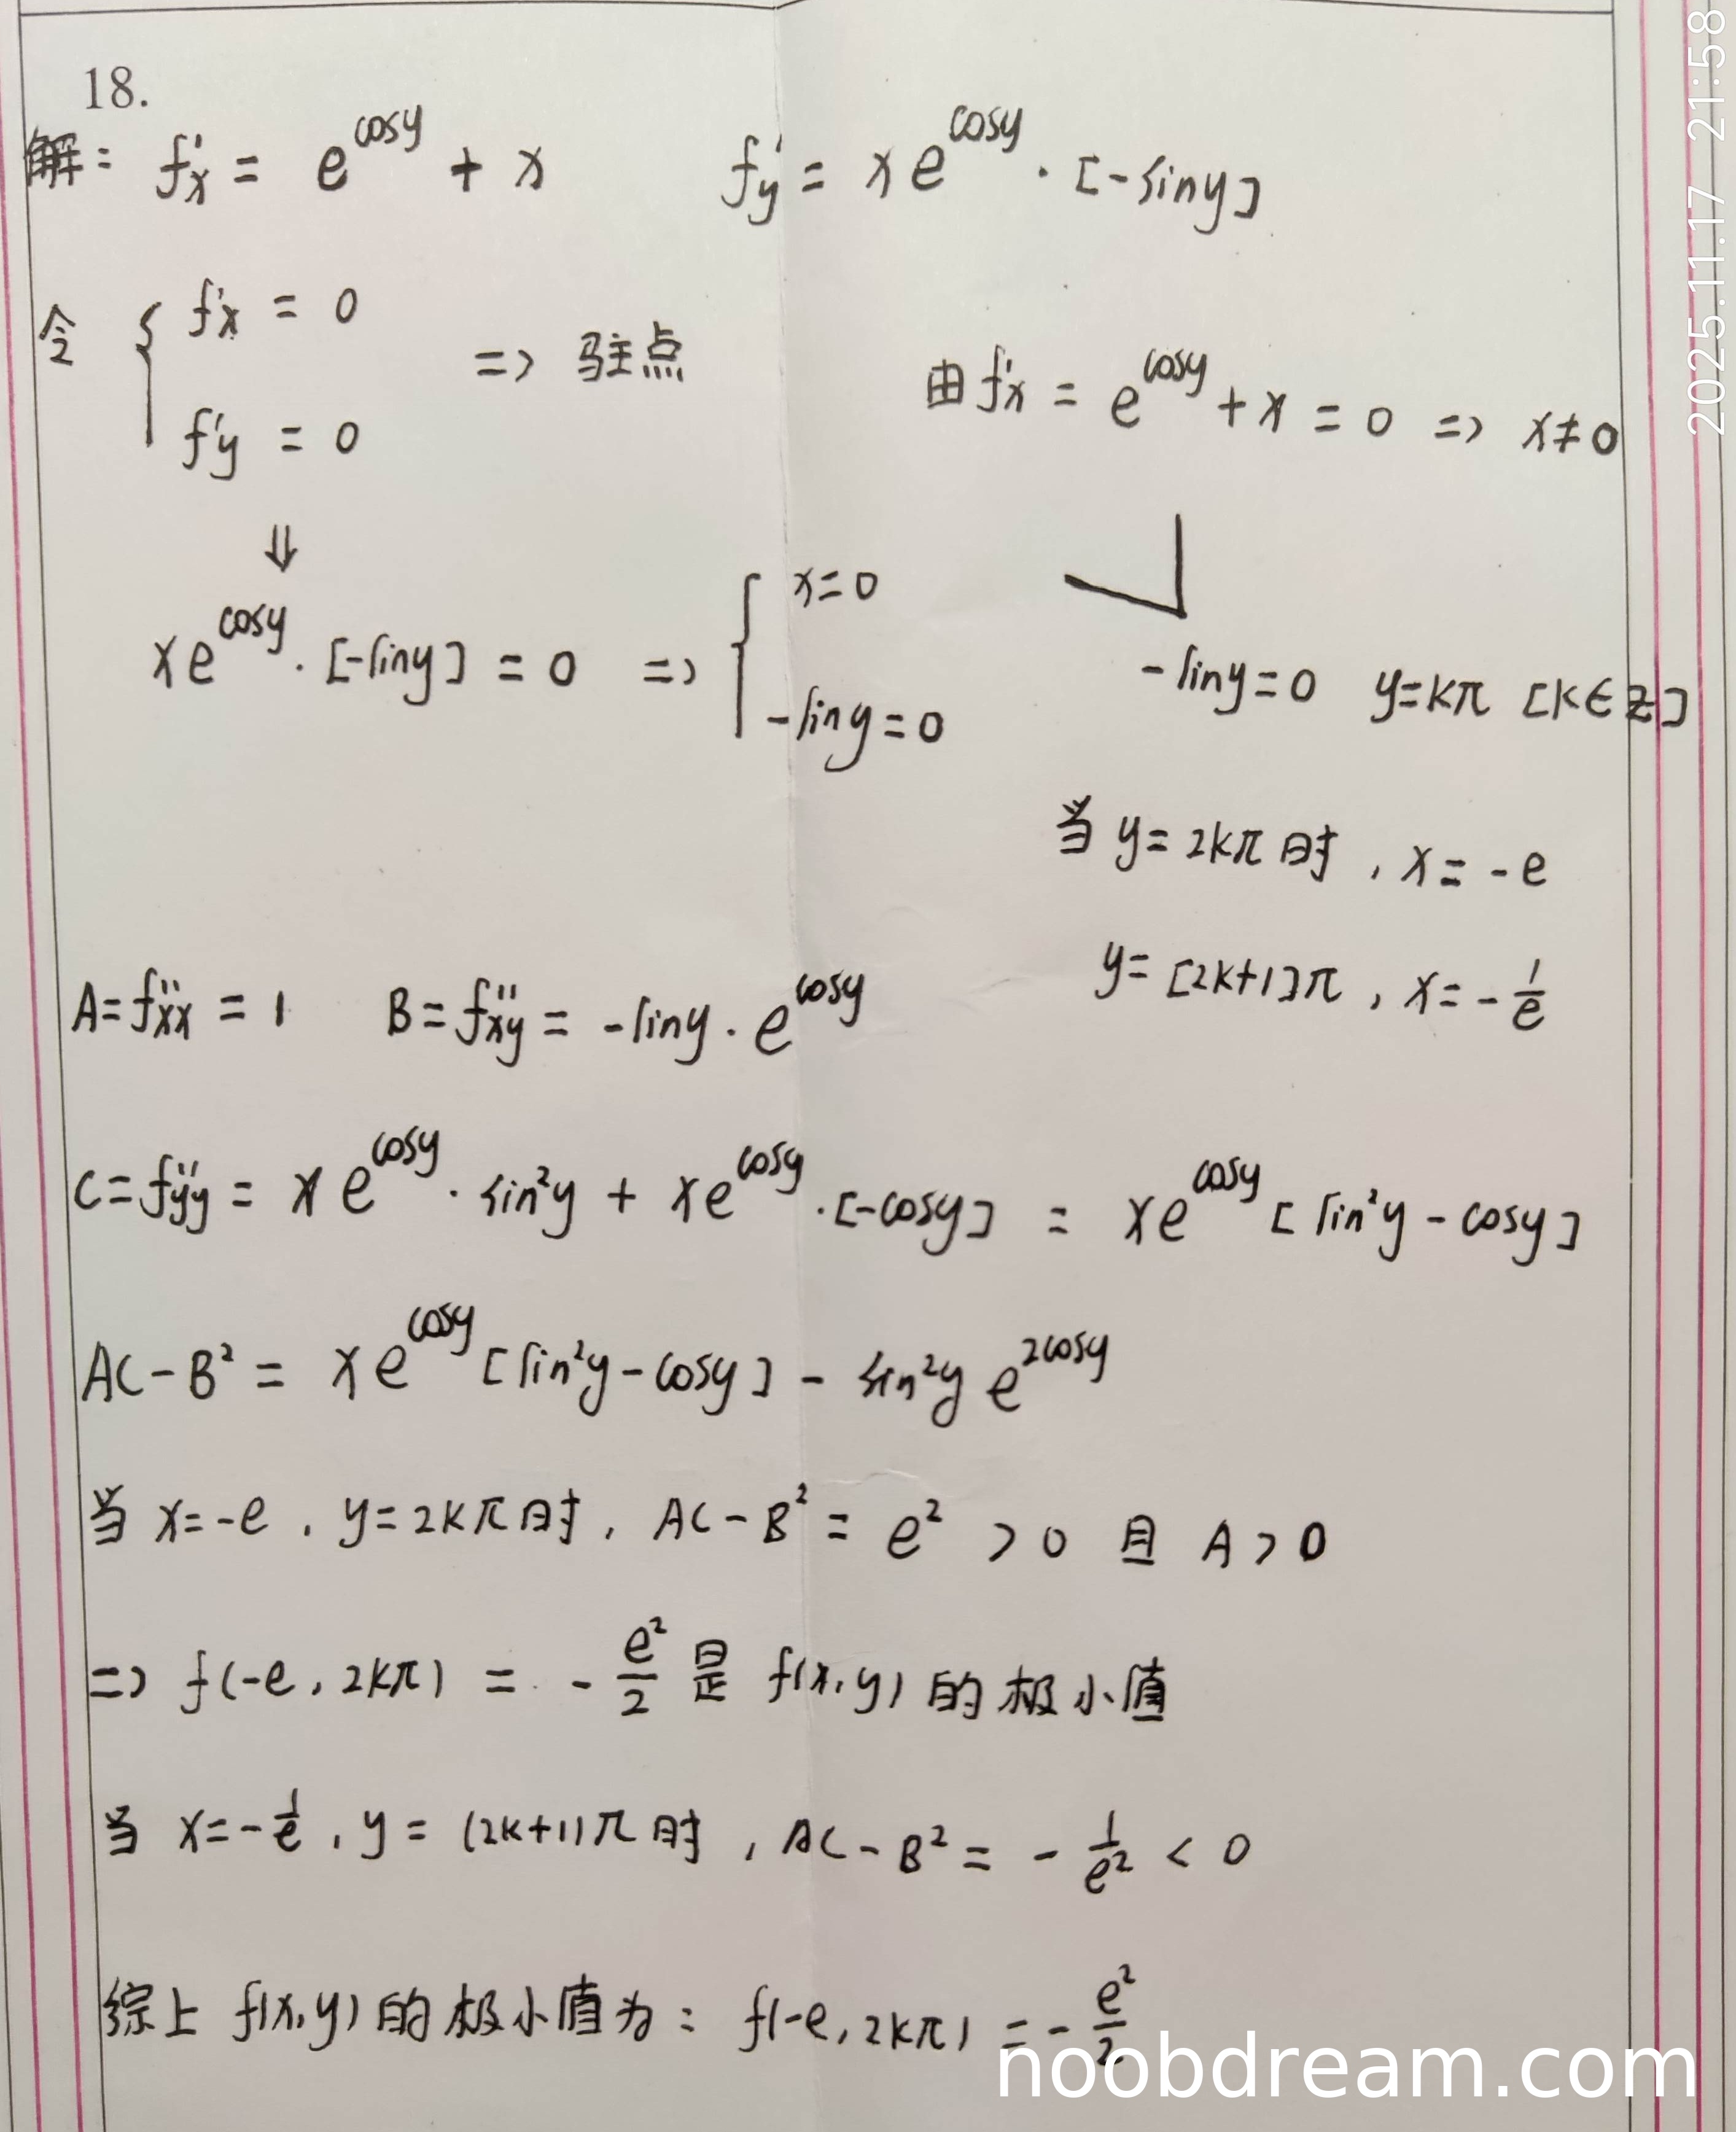 18.
解: f'x = e^cosy + x f'y = xe^cosy · [-siny]
令 { f'x = 0 f'y = 0 => 驻点 由f'x = e^cosy + x = 0 => x≠0
⇓
xe^cosy · [-siny] = 0 => { x=0 -siny=0
-siny=0 y=kπ [k∈Z]
当 y=2kπ时, x=-e
y=[2k+1]π, x=-1/e
A=f''xx = 1 B=f''xy = -siny · e^cosy
C=f''yy = xe^cosy · sin²y + xe^cosy · [-cosy] = xe^cosy [sin²y - cosy]
AC-B² = xe^cosy [sin²y-cosy] - sin²y e^2cosy
当 x=-e, y=2kπ时, AC-B² = e² > 0 且 A>0
=> f(-e, 2kπ) = -e²/2 是 f(x,y) 的极小值
当 x=-1/e, y=(2k+1)π时, AC-B² = -1/e² < 0
综上 f(x,y) 的极小值为: f(-e, 2kπ) = -e²/2
2025.11.17 21:58
noobdream.com